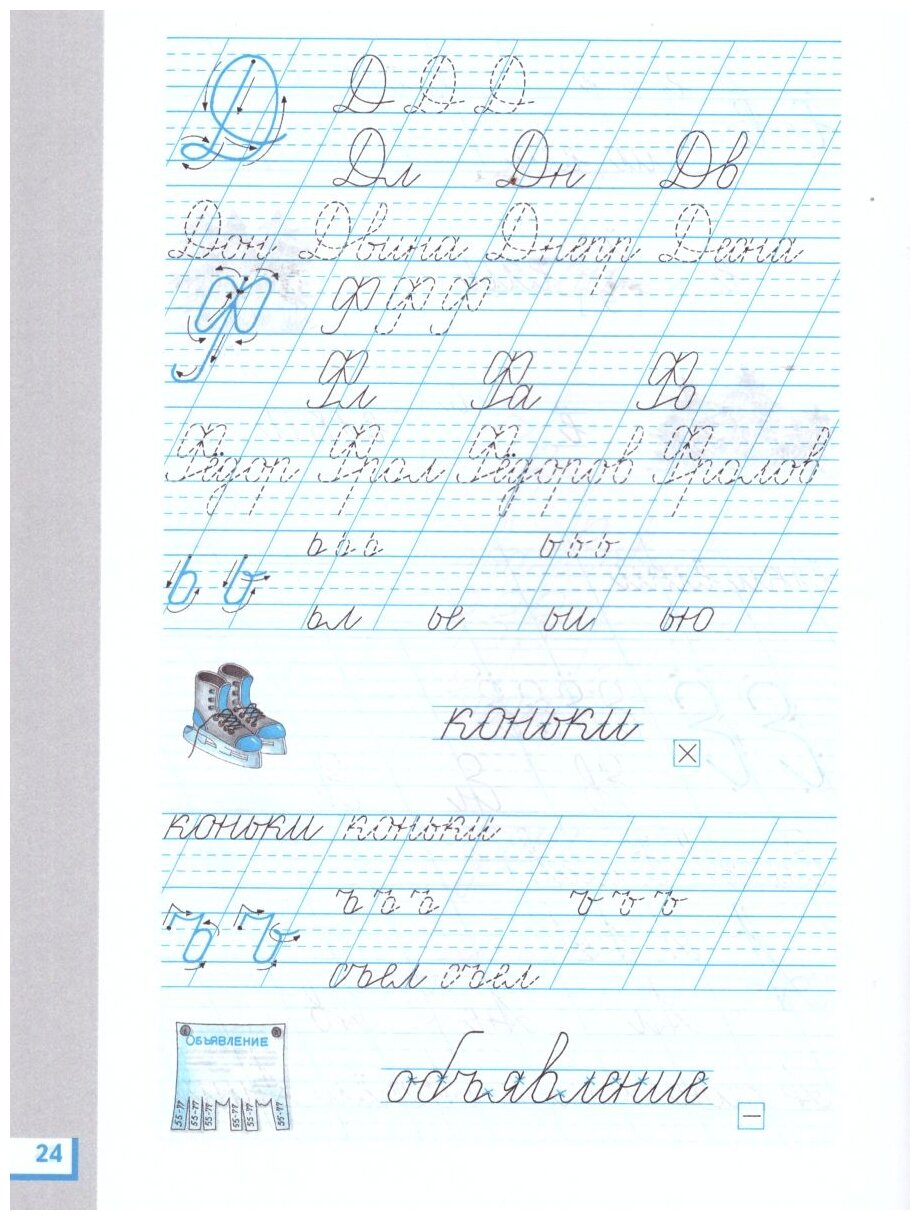 Д Д Д Д
Дл Дн Дв
Дон Двина Днепр Десна
Ф Ф Ф Ф
Фл Фа Фо
Фёдор Фрол Фёдоров Фролов
ь ь ь ь ь ь
ь ь
ьл ье ьи ью
коньки
коньки коньки
ъ ъ ъ ъ ъ ъ
ъ ъ
съел съел
ОБЪЯВЛЕНИЕ
объявление
55-77 55-77 55-77 55-77 55-77 55-77
24